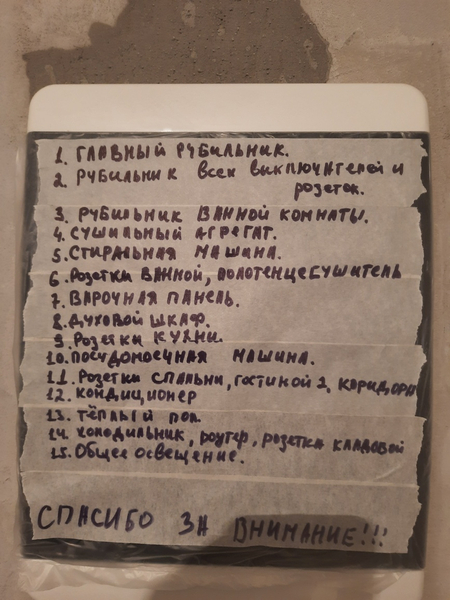 1. ГЛАВНЫЙ РУБИЛЬНИК.
2. РУБИЛЬНИК всех выключателей и
розеток.
3. РУБИЛЬНИК ВАННОЙ КОМНАТЫ.
4. СУШИЛЬНЫЙ АГРЕГАТ.
5. СТИРАЛЬНАЯ МАШИНА.
6. Розетки ВАННОЙ, ПОЛОТЕНЦЕСУШИТЕЛЬ
7. ВАРОЧНАЯ ПАНЕЛЬ.
8. ДУХОВОЙ ШКАФ.
9. Розетки КУХНИ.
10. ПОСУДОМОЕЧНАЯ МАШИНА.
11. Розетки СПАЛЬНИ, ГОСТИНОЙ 2, КОРИДОРИ
12. КОНДИЦИОНЕР
13. ТЁПЛЫЙ ПОЛ.
14. ХОЛОДИЛЬНИК, РОУТЕР, РОЗЕТКА КЛАДОВОЙ
15. Общее освещение.
СПАСИБО ЗА ВНИМАНИЕ!!!